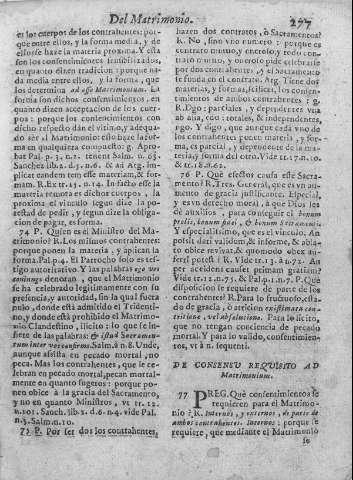 Del Matrimonio. 277
es los cuerpos de los contrahentes: por-
que entre ellos, y la forma media, y de
essotros haze la materia proxima. Y esta
son los consentimientos
en quanto dizen tradicion: porque na-
da media entre ellos, y la forma, que
los determina ad esse Matrimonium. La
forma son dichos consentimientos, en
quanto dizen acceptacion de los cuer-
pos: porque los consentimientos con
dicho respecto dàn el vltimo, y adequa-
do sèr al Matrimonio: esto haze la for-
ma en qualquiera compuesto: g. Apro-
bat Pal. p. 3. n. 1. tenent Salm. n. 05.
Sanchez lib. 2. d. 5. n. 6. & ai Arg. im-
plicat eandem rem esse materiam, & for-
mam. R. Ex tr. 15. n. 14. In facto esse la
materia remota es dichos cuerpos, la
proxima el vinculo segun dize la po-
testad de pedir, y segun dize la obliga-
cion de pagar, es forma.
74 P. Quien es el Ministro del Ma-
trimonio? R. Los mismos contrahentes:
porque ponen la materia, y aplican la
forma. Pal. p. 4. El Parrocho solo es tes-
tigo autorizativo. Y las palabras ego vos
coniungo denotan, que el Matrimonio
se ha celebrado legitimamente con su
presencia, y autoridad, sin la qual fuera
nulo, donde està admitido el Tridenti-
no, y donde està prohibido el Matrimo-
nio Clandestino, ilicito: lo que se in-
fiere de las palabras: & istud Sacramen-
tum inter vos confirmo. Salm. à n. 8. Unde,
aunque assista en pecado mortal, no
peca. Mas los contrahentes, que le ce-
lebran en pecado mortal, pecan mortal-
mente en quanto sugetos: porque po-
nen obice à la gracia del Sacramento,
y no en quanto Ministros, vt tr. 12.
n. 101. Sanch. lib. 2. d. 6. n. 4. vide Pal.
n. 5. Salm. n. 10.
75 P. Por ser dos los contrahentes,
hazen dos contratos, ò Sacramentos?
R. No, sino vno numero: porque es
contrato mutuo, y onoroso, y todo con-
trato mutuo, y oneroso pide celebrarse
por dos contrahentes, y el Sacramento
se funda en el contrato. Arg. Tiene dos
materias, y formas, scilicet, los consen-
timientos de ambos contrahentes: g.
R. Dgo: parciales, y dependentes vna
ab alia, cõn: totales, & independentes,
ngo. Y digo, que aunque cada vno de
los contrahentes ponen materia, y for-
ma, es parcial, y dependente de la ma-
teria, y forma del otro. Vide tr. 17. n. 10.
& tr. 18. n. 61.
76 P. Què efectos causa este Sacra-
mento? R. Tres. General, que es vn au-
mento de gracia justificante. Especial,
y es vn derecho moral, à que Dios les
dè auxilios, para conseguir el bonum
prolis, bonum fidei, & bonum Sacramenti.
Y especialissimo, que es el vinculo. An
possit dari validum, & informe, & abla-
to obice revivat, & quomodo obex au-
ferri possit? R. Vide tr. 13. à n. 72. An
per accidens causet primam gratiam?
Vide tr. 12. n. 75. & Pal. p. 1. n. 7. P. Què
disposicion se requiere de parte de los
contrahentes? R. Para lo fructuoso, esta-
do de gracia, ò atricion existimata con-
tritione, vel absolucione. Para lo licito,
que no tengan conciencia de pecado
mortal. Y para lo valido, consentimien-
tos, vt à n. sequenti.
DE CONSENSU REQUISITO AD
Matrimonium.
77 PREG. Què consentimientos se
requieren para el Matrimo-
nio? R. Internos, y externos, de parte de
ambos contrahentes. Internos: porque se
requiere, que mediante el Matrimonio
se